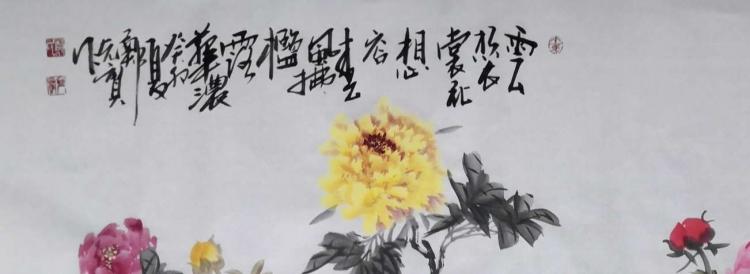 雲
想衣
裳花
想
容
春
風拂
檻
露
華濃
癸卯
夏